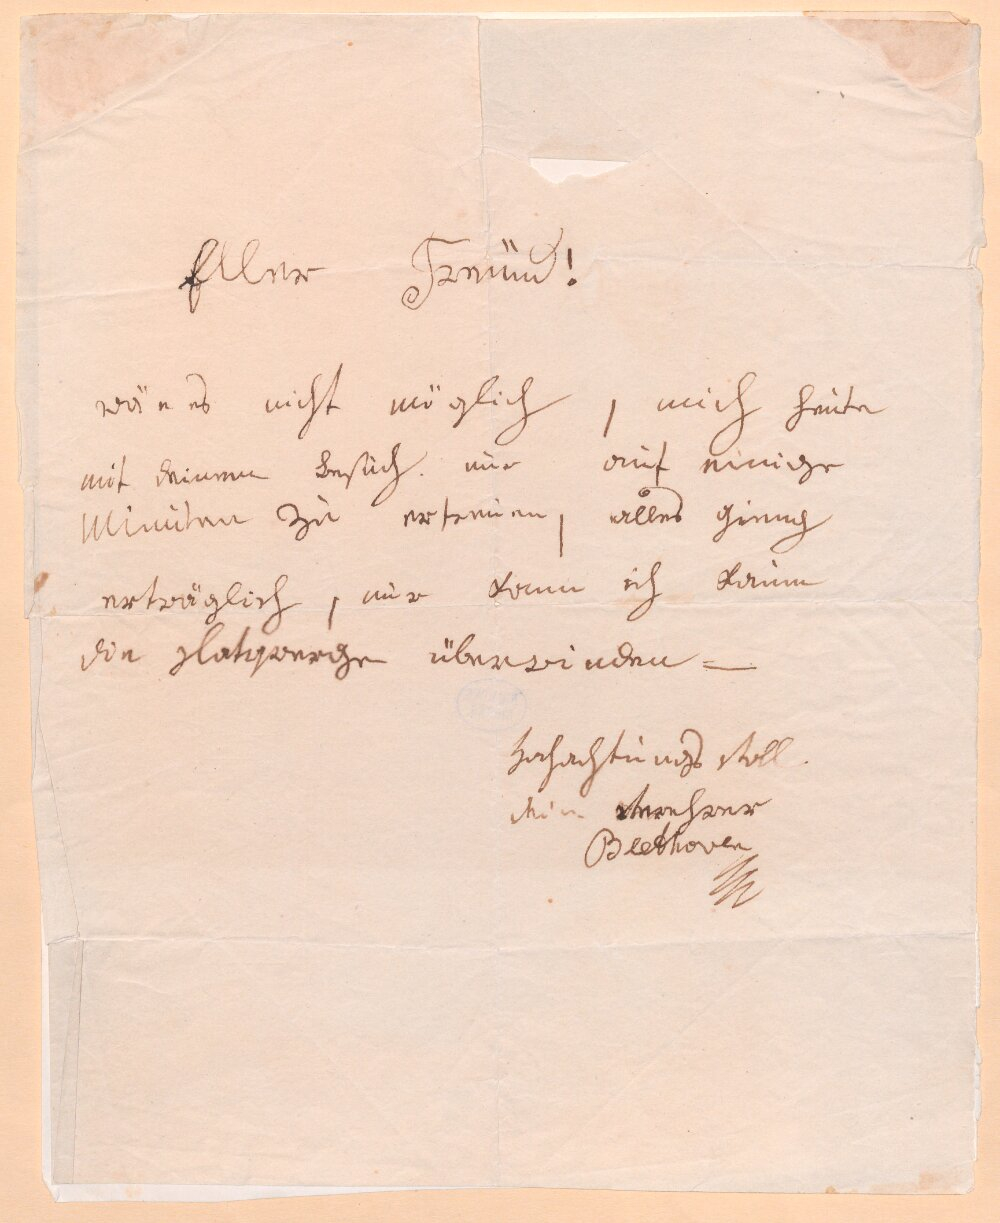 Edler Freund!
wär es nicht möglich, mich heute
mit deinem Besuch nur auf einige
Minuten zu erfreuen, alles gieng
erträglich, nur kann ich kaum
die überwinden =
Hochachtungsvoll
dein Verehrer
Beethoven